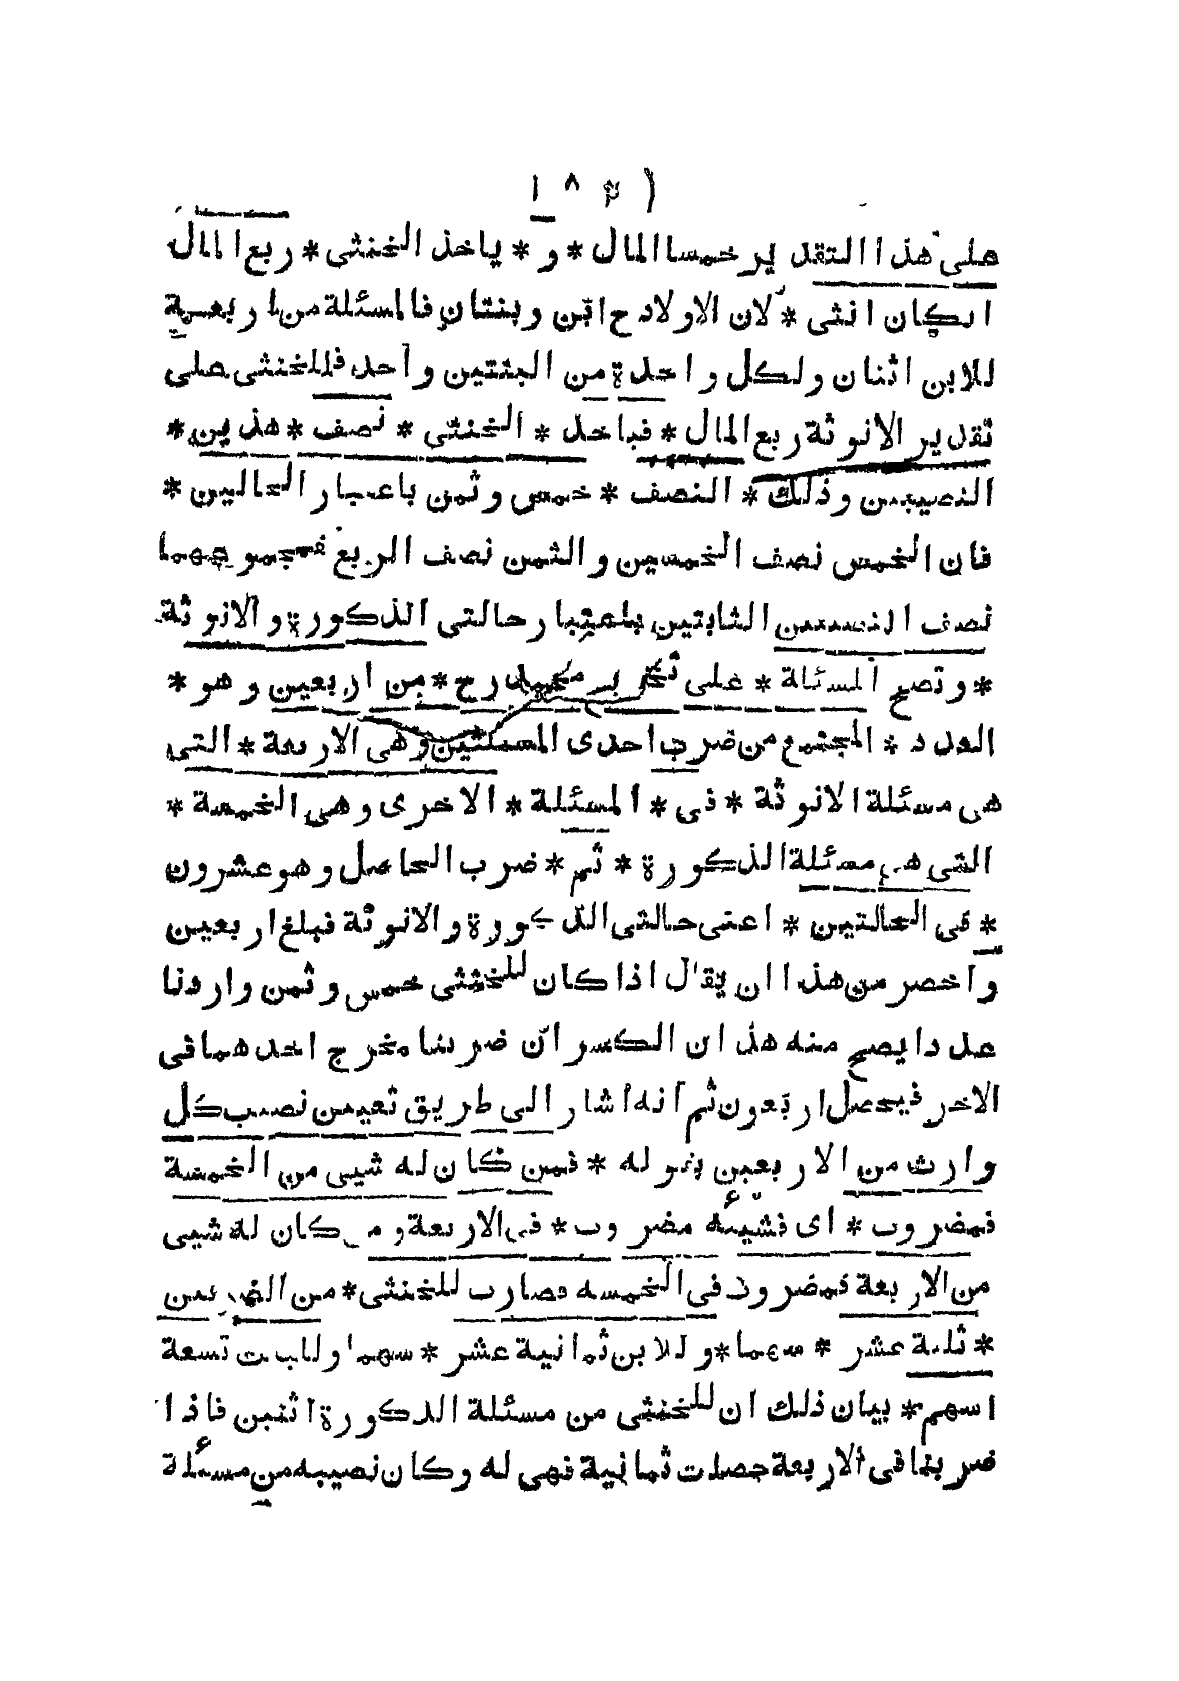 على هذا التقدير خمسا المال * و * ياخذ الخنثى * ربع المال
انكان انثى * لان الاولاد ح ابن وبنتان فالمسئلة من اربعة
للابن اثنان ولكل واحدة من البنتين واحد فللخنثى على
تقدير الانوثة ربع المال * فياخذ * الخنثى * نصف * هذين *
النصيبين وذلك * النصف * خمس وثمن باعتبار الحالين *
فان الخمس نصف الخمسين والثمن نصف الربع فمجموعهما
نصف النصيبين الثابتين باعتبار حالتى الذكورة والانوثة
* وتصح المسئلة * على تخريجه * من اربعين وهو *
العدد * المجتمع من ضرب احدى المسئلتين وهى الاربعة * التى
هى مسئلة الانوثة * فى * المسئلة * الاخرى وهى الخمسة *
التى هى مسئلة الذكورة * ثم * ضرب الحاصل وهو عشرون
* فى الحالتين * اعنى حالتى الذكورة والانوثة فبلغ اربعين
واخصر من هذا ان يقال اذا كان للخنثى خمس وثمن واردنا
عددا يصح منه هذان الكسران ضربنا مخرج احدهما فى
الاخر فيحصل اربعون ثم انه اشار الى طريق تعيين نصيب كل
وارث من الاربعين بقوله * فمن كان له شيئ من الخمسة
فمضروب * اى فشيئه مضروب * فى الاربعة ومن كان له شيئ
من الاربعة فمضروب فى الخمسه فصارت للخنثى * من الضربين
* ثلثة عشر * سهما * وللابن ثمانية عشر * سهما وللبنت تسعة
اسهم * بيان ذلك ان للخنثى من مسئلة الذكورة اثنين فاذا
ضربنا فى الاربعة حصلت ثمانية فهى له وكان نصيبه من مسئلة